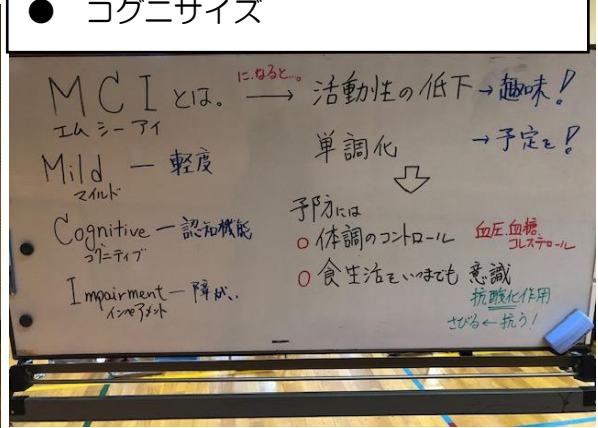 ● コグニサイズ
MCIとは。
エム シー アイ
Mild ー 軽度
マイルド
Cognitive ー 認知機能
コグニティブ
Impairment ー 障がい
インペアメント
に、なると…。
→ 活動性の低下 → 趣味!
単調化 → 予定を!
予防には
○ 体調のコントロール 血圧、血糖、
コレステロール
○ 食生活をいつまでも 意識
抗酸化作用
さびる ← 抗う!